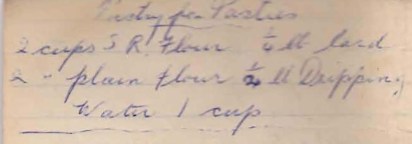 Pastry for Pasties
2 cups S R. Flour ¼ lb lard
2 " plain flour ¼ lb Dripping
Water 1 cup